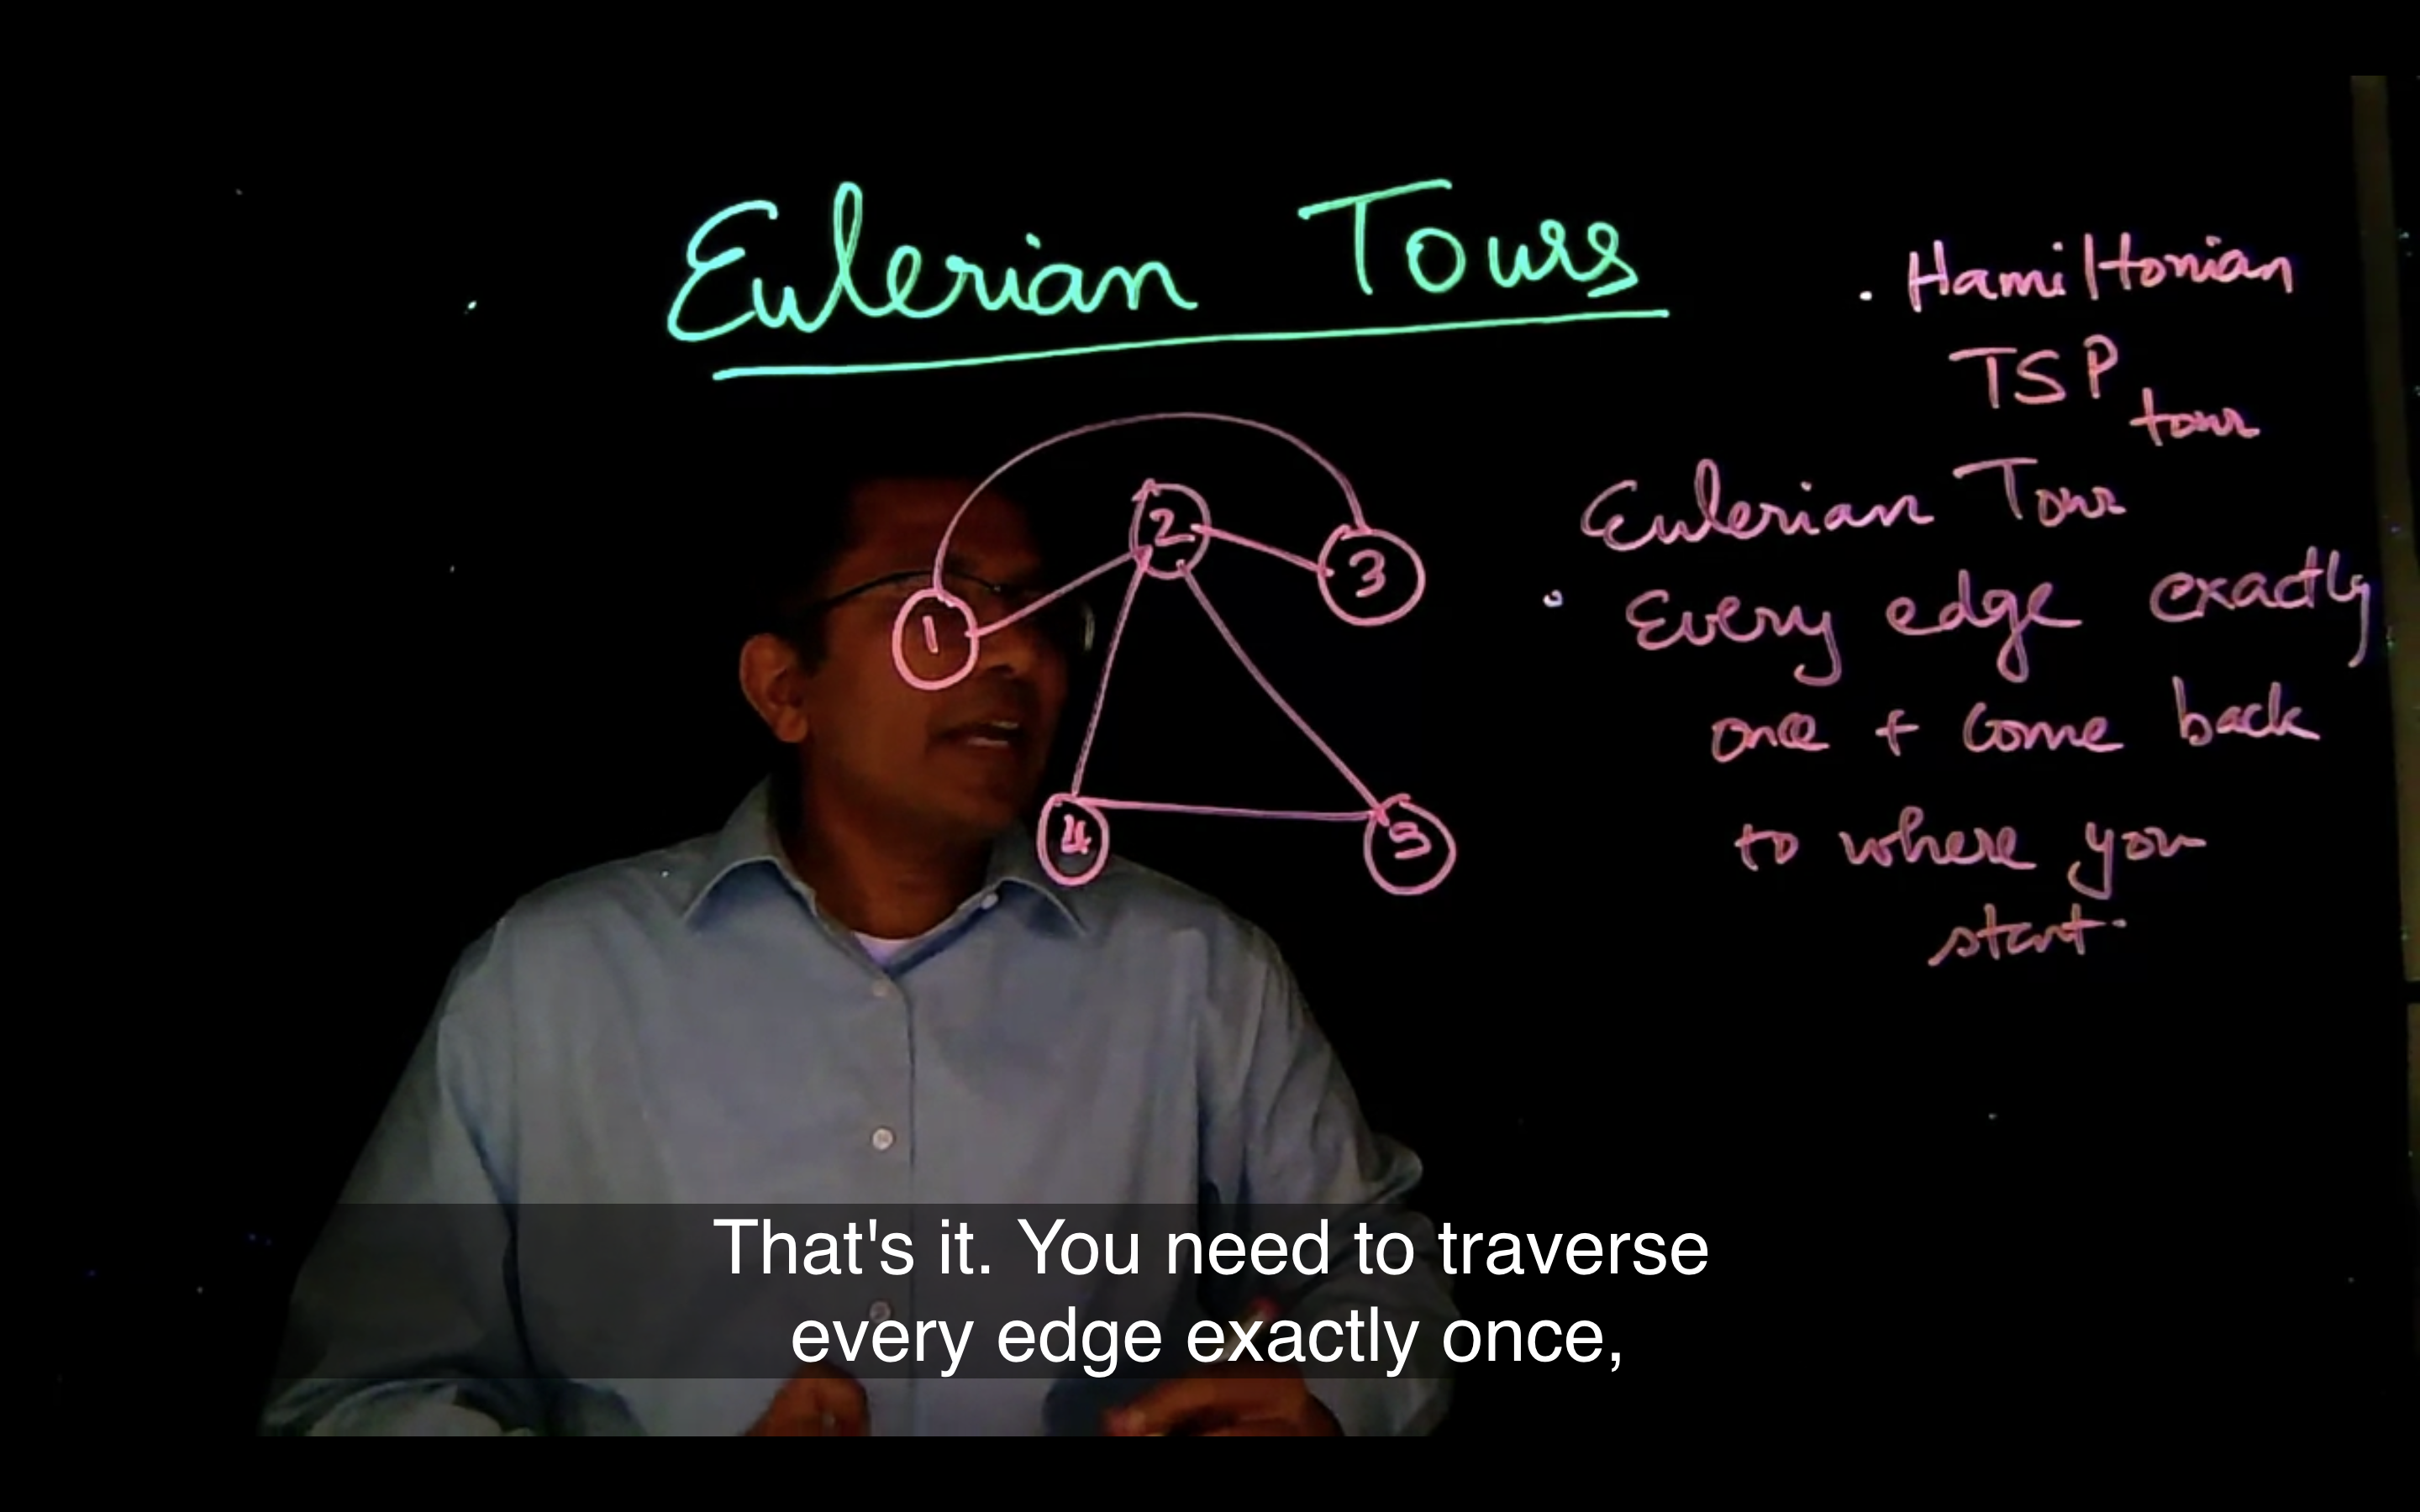 Eulerian Tours
1
2
3
4
5
. Hamiltonian
TSP
tour
Eulerian Tour
• Every edge exactly
once + come back
to where you
start.
That's it. You need to traverse
every edge exactly once,